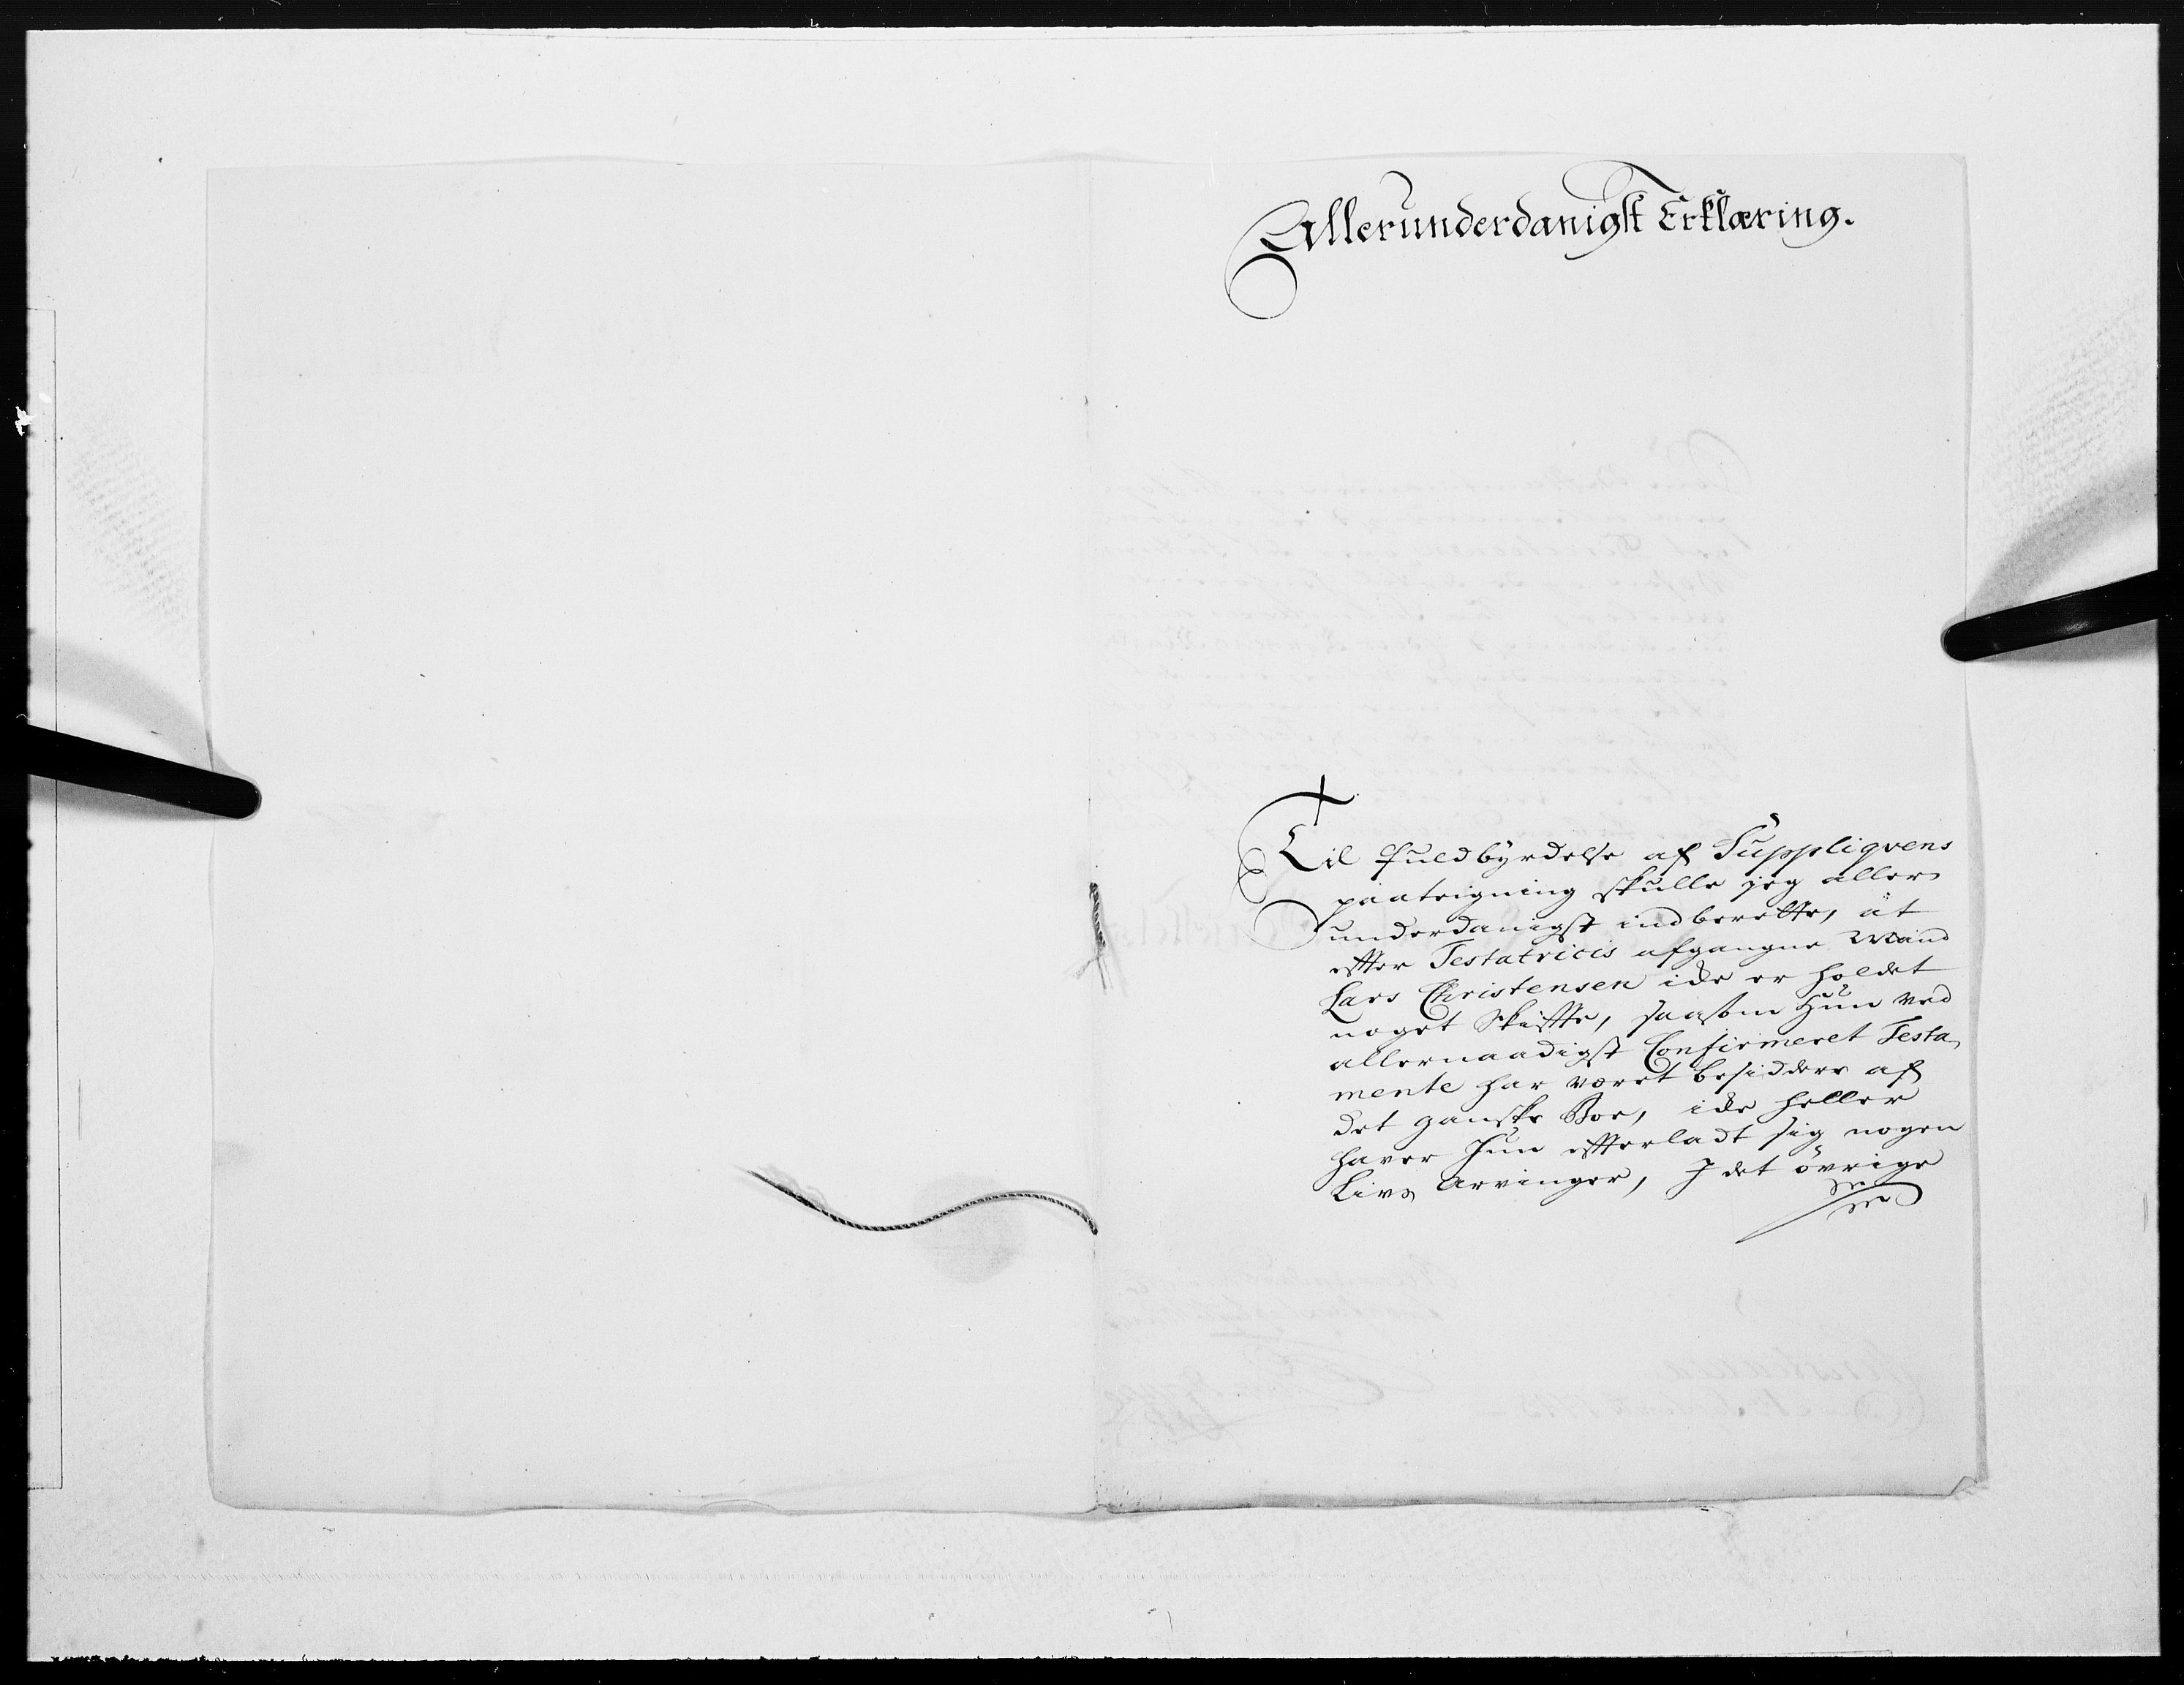 Allerunderdanigst Erklæring.
Til fuldbÿrdelse af Suppliqvens
paateigning skulle jeg aller
underdanigst indberette, at
efter Testatricis afgangne Mand
Lars Christensen icke er holdet
noget Skiffte, saasom Hun ved
allernaadigst Confirmeret Testa,
mente har været besiddere af
det gandske Boe, icke heller
haver Hun efterladt sig nogen
Livs Arvinger, I det øvrige